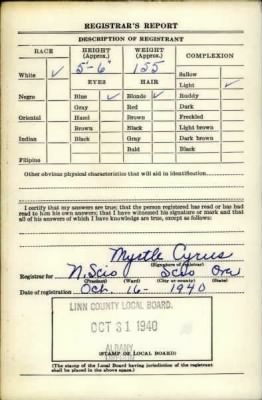 REGISTRAR'S REPORT
DESCRIPTION OF REGISTRANT
RACE HEIGHT (Approx.) WEIGHT (Approx.) COMPLEXION
White ✓ 5'-6" 155 Sallow
EYES HAIR Light ✓
Negro Blue ✓ Blonde ✓ Ruddy
Gray Red Dark
Oriental Hazel Brown Freckled
Brown Black Light brown
Indian Black Gray Dark brown
Bald Black
Filipino
Other obvious physical characteristics that will aid in identification
I certify that my answers are true; that the person registered has read or has had
read to him his own answers; that I have witnessed his signature or mark and that
all of his answers of which I have knowledge are true, except as follows:
Myrtle Cyrus
(Signature of registrar)
Registrar for N. Scio Scio Ore
(Precinct) (Ward) (City or county) (State)
Date of registration Oct. 16- 1940
LINN COUNTY LOCAL BOARD.
OCT 31 1940
ALBANY
(STAMP OF LOCAL BOARD)
(The stamp of the Local Board having jurisdiction of the registrant
shall be placed in the above space.)